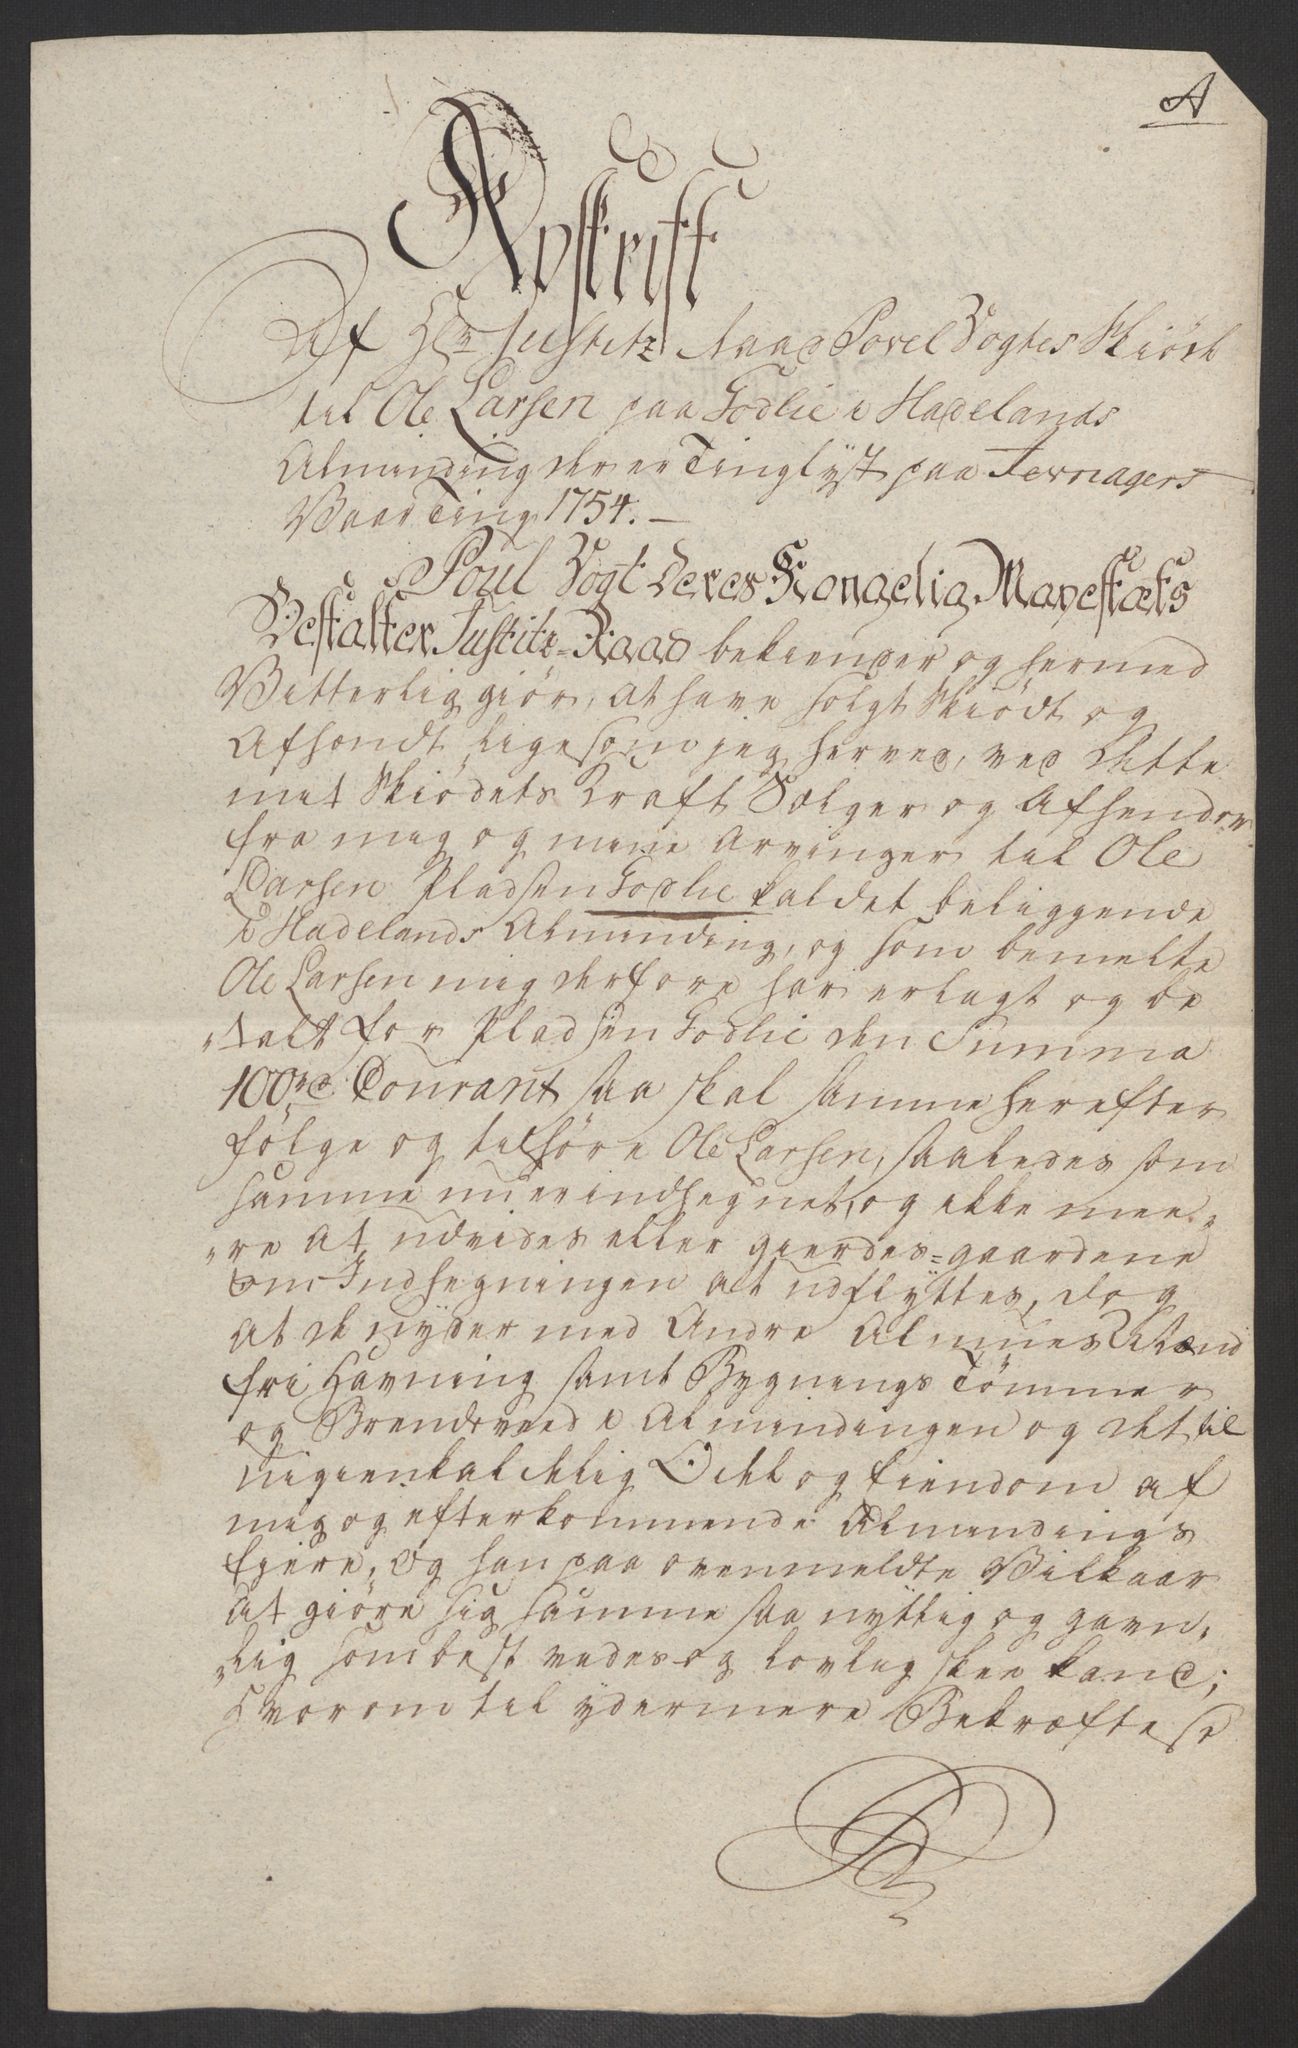 A
Avskrift
Af Hr Justitz Raad Povel Vogtes Skiöde
til Ole Larsen paa Godlie i Hadelands
Alminding der er Tinglÿst paa Jevnagers
Vaar Ting 1754. —
Poul Vogt Deres Kongelig Mayestæts
Bestalter Justitz-Raad bekiender og hermed
Vitterlig giör, at have solgt Skiödt og
Afhendt, ligesom jeg herved, ved dette
mit Skiödets Kraft Sælger og Afhender
fra mig og mine Arvinger til Ole
Larsen Pladsen Godlie kaldet beliggende
i Hadelands Alminding, og som bemelte
Ole Larsen mig derfore har erlagt og be
„talt for Pladsen Godlie den Summa
100rd Courant saa skal samme herefter
fölge og tilhöre Ole Larsen, saaledes som
samme nu er indhegnet, og ikke mee„
„re at udvides eller gierdes-gaardene
om Indhegningen at udflÿttes, dog
at de nÿder med Andre Almues Mænd
fri Havning samt Bygnings Tömmer
og Brendeveed i Almindingen og det til
uigienkaldelig Odel og Eiendom af
mig og efterkommende Almindings
Eiere, og han paa ovenmeldte Vilkaar
at giöre sig samme saa nyttig og gavn„
„lig som best vedes og lovlig skee kand;
Hvorom til ydermere Bekræftelse